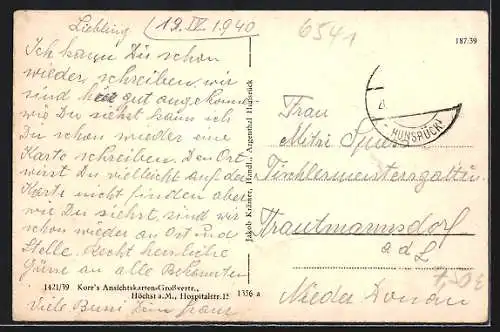 Liebling (19.IV.1940
Ich kann Dir schon
wieder schreiben. wir
sind hir gut angekomm
wie Du siehst kann ich
Du schon wiedler eine
Karte schreiben. Den Ort
wirst Du viellicht auf der
Karte nicht finden aber
wie Du siehst, sind wir
schon wieder an Ort und
Stelle. Recht herrliche
Grüse an alle Bekannten
1421/39 Korr's Ansichtskarten-Großvertr.,
Höchst a.M., Hospitalstr. 15 1356 a
Viele Bussi Dein Franz
Jakob Krämer, Handl., Argenthal Hunsrück
6541
187/39
HUNSRÜCK
Frau
Mitzi
Tischlermeistersgattin
Trautmannsdorf
a d L
Nieder Donau
7,50 E